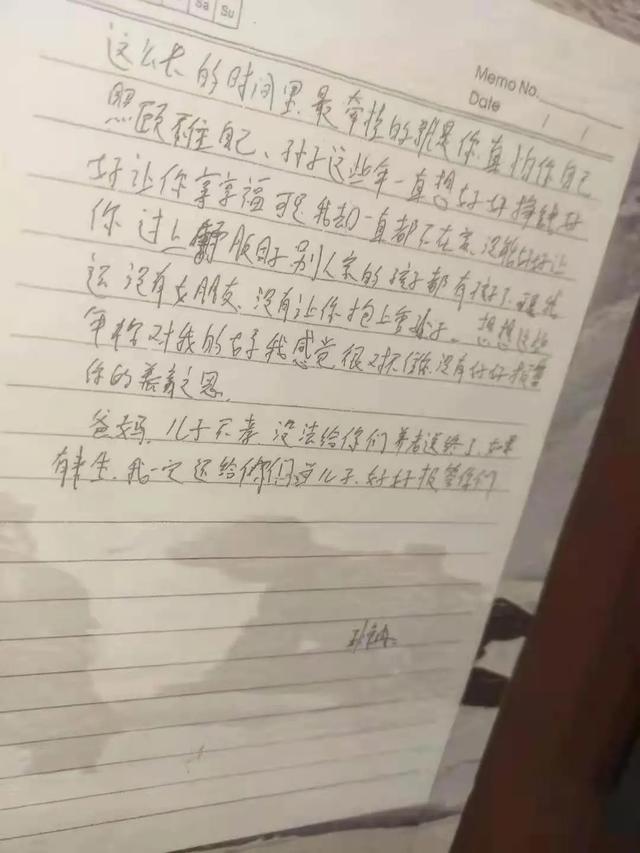 Sa Su
Memo No.
Date / /
这么长的时间里最牵挂的就是你,真怕你自己
照顾不住自己、孙子这些年一直想好好挣钱好
好让你享享福可是我却一直都不在家.没能好好让
你过上舒服日子.别人家的孩子都有孩子了.可是我
还没有女朋友.没有让你抱上重孙子.想想这些
年你对我的好我感觉很对不住你没有好好报答
你的养育之恩.
爸妈,儿子不孝没法给你们养老送终了.如果
有来生.我一定还给你们当儿子.好好报答你们